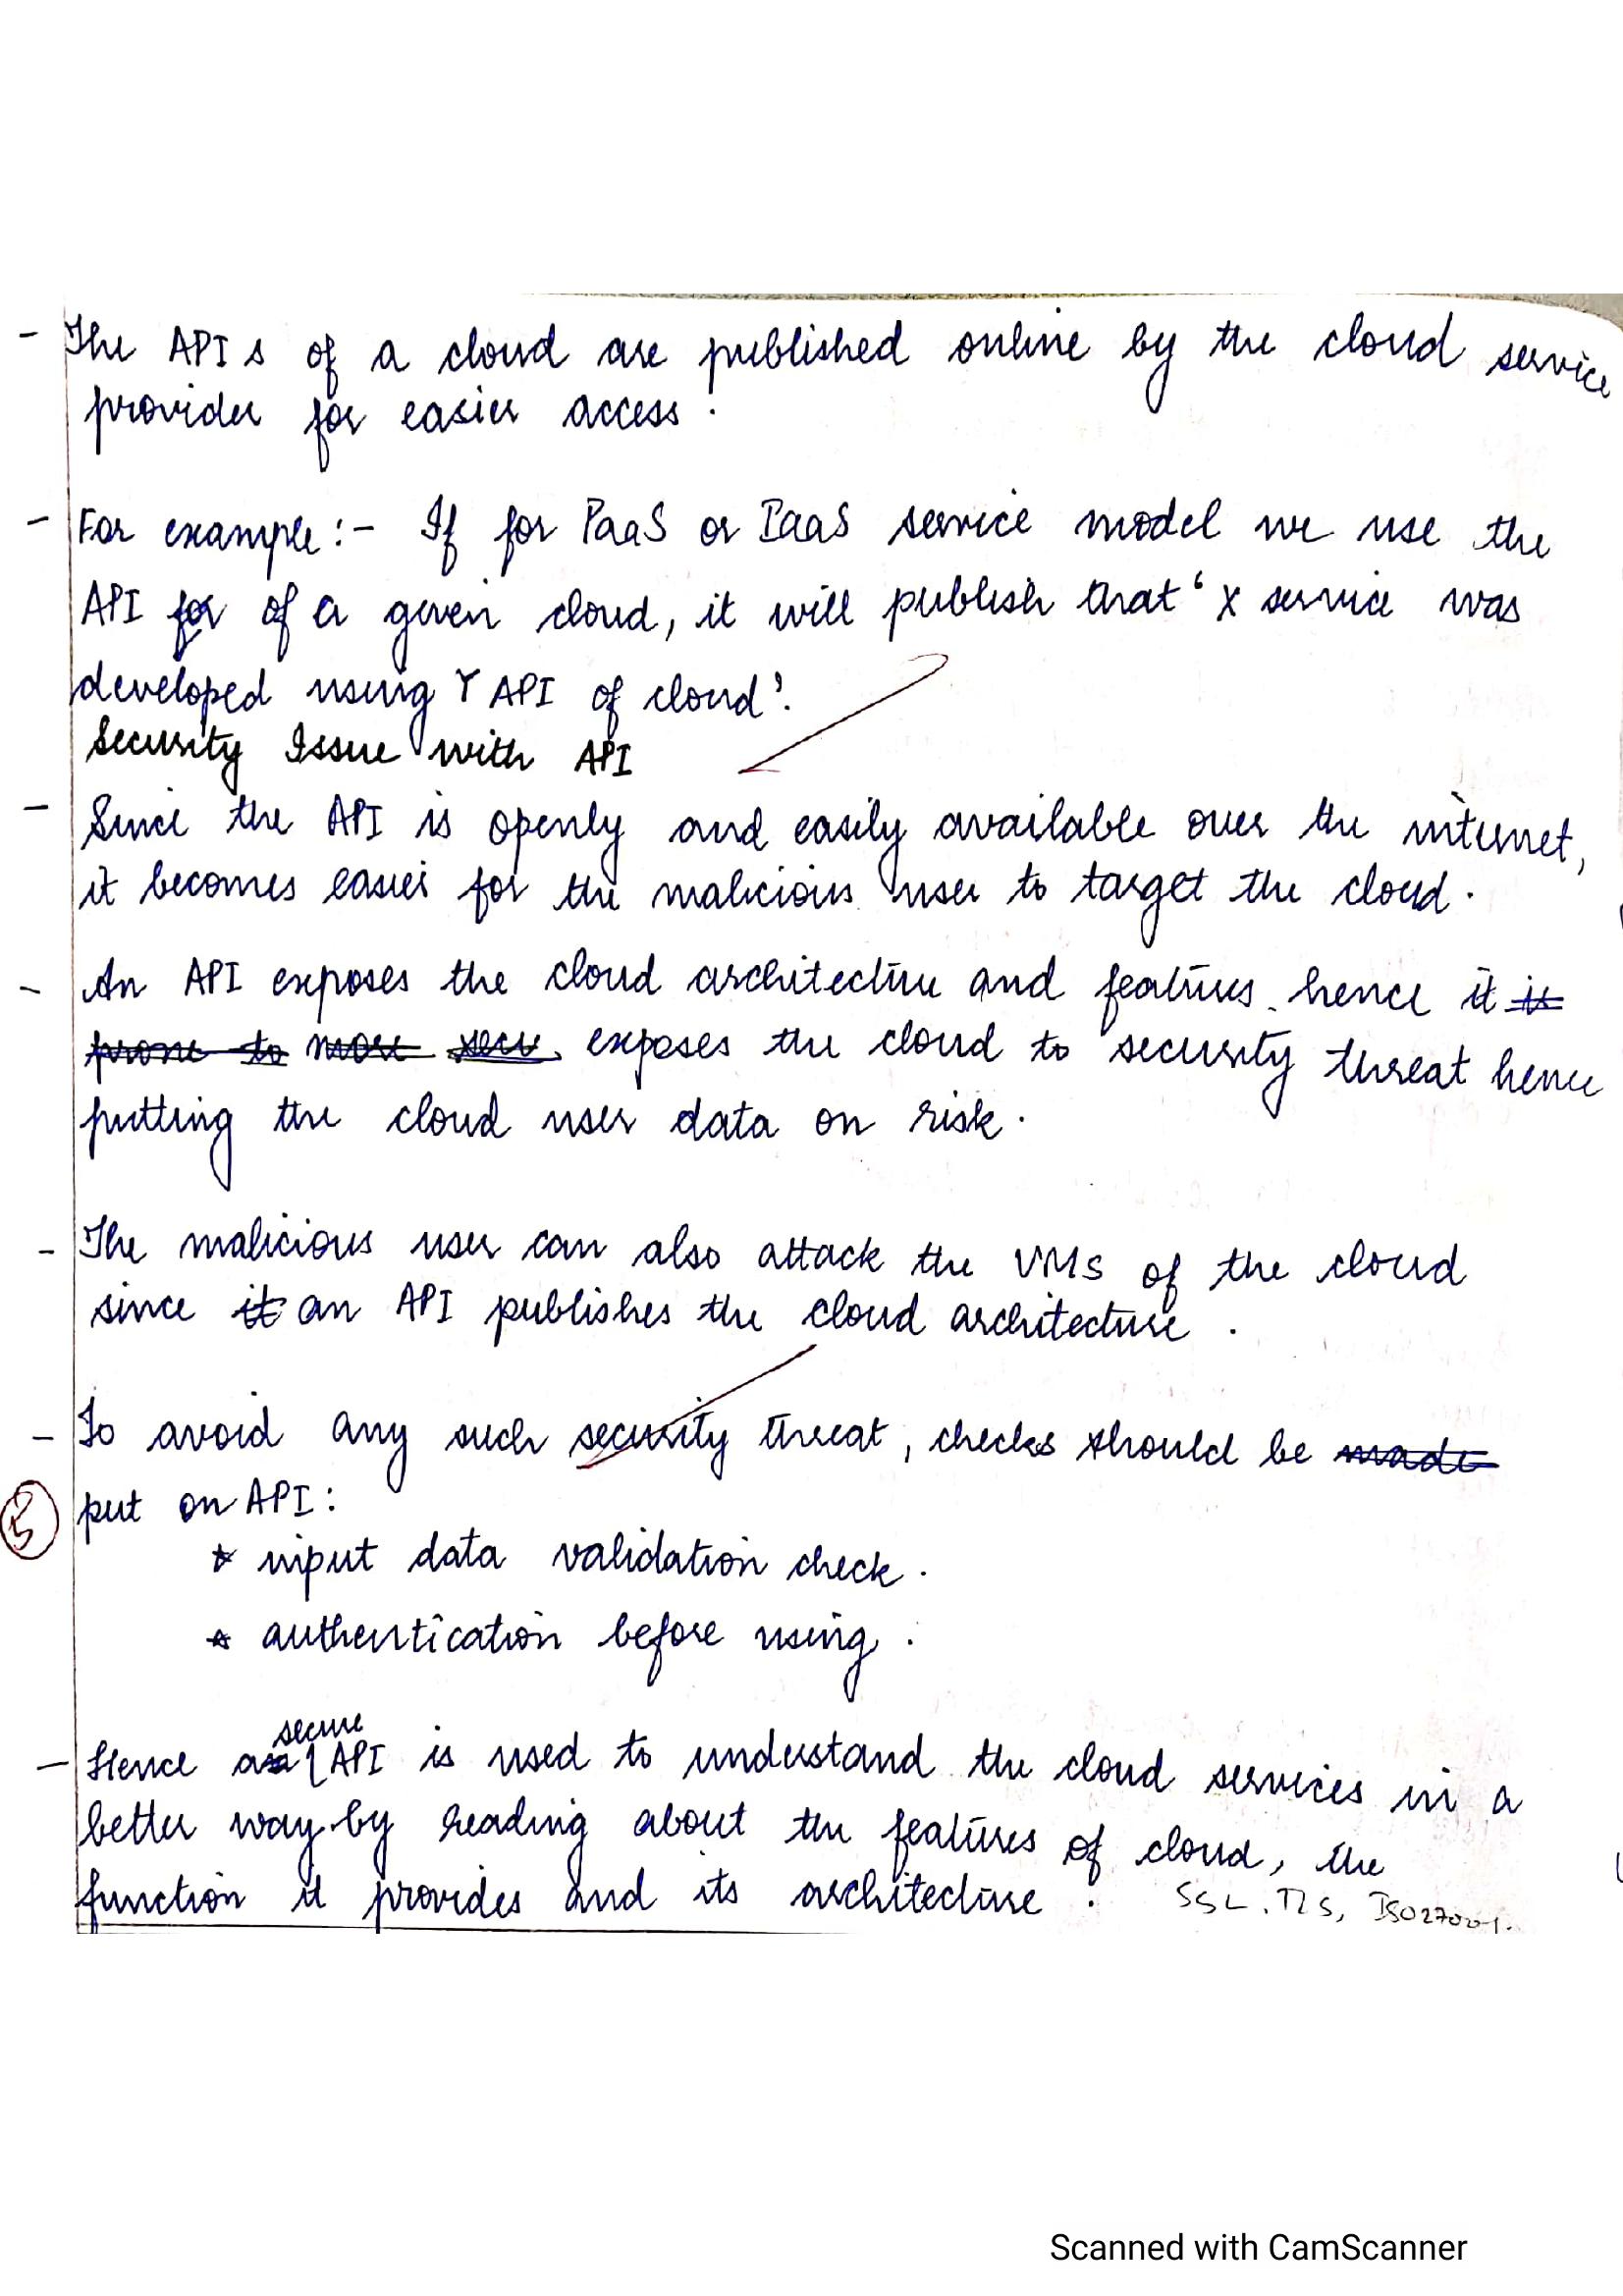 - The APIs of a cloud are published online by the cloud service
provider for easier access.
- For example:- If for PaaS or IaaS service model we use the
API for of a given cloud, it will publish that 'X service was
developed using Y API of cloud'.
Security Issue with API
- Since the API is openly and easily available over the internet,
it becomes easier for the malicious user to target the cloud.
- An API exposes the cloud architecture and features hence it is
prone to more secu exposes the cloud to security threat hence
putting the cloud user data on risk.
- The malicious user can also attack the VMs of the cloud
since it an API publishes the cloud architecture.
- To avoid any such security threat, checks should be made
put on API:
* input data validation check.
* authentication before using.
secure
- Hence a API is used to understand the cloud services in a
better way by reading about the features of cloud, the
function it provides and its architecture.
SSL, TLS, ISO27001.
Scanned with CamScanner